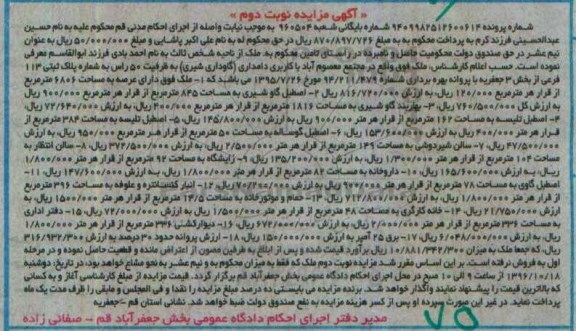 « آگهی مزایده نوبت دوم »
شماره پرونده ۹۴۰۹۹۸۲۵۱۲۶۰۰۶۱۴ شماره بایگانی شعبه ۹۶۰۵۰۴ به موجب نیابت واصله از اجرای احکام مدنی قم محکوم علیه به نام حسین
عبدالحسینی فرزند کرم به پرداخت محکوم به به مبلغ ۸۷۰/۸۹۲/۷۴۶ ریال در حق محکوم له به نام علی اکبر پاشایی و مبلغ ۵۰/۰۰۰/۰۰۰ ریال به عنوان
نیم عشر در حق صندوق دولت محکومیت حاصل و نامبرده در راستای تامین محکوم به، ملک از ناحیه شخص ثالث به نام احمد بادی فرزند ابوالقاسم معرفی
نموده است. حسب اعلام کارشناس، ملک فوق واقع در مجتمع معصوم آباد با کاربری دامداری (گاوداری شیری) به ظرفیت ۵۰ راس به شماره پلاک ثبتی ۱۱۳
فرعی از بخش ۳ جعفریه با پروانه بهره برداری شماره ۹۴/۲۱۱/۴۷۹ مورخ ۱۳۹۵/۷/۲۶ می باشند که ۱- ملک فوق دارای عرصه به مساحت ۶۸۰۶
مترمربع از قرار هر متر ۱۲۰/۰۰۰ ریال به ارزش ۸۱۶/۷۲۰/۰۰۰ ریال ۲- اصطبل گاو شیری به مساحت ۸۴۵ مترمربع از قرار هر متر ۹۰۰/۰۰۰ ریال به
ارزش کل ۷۶۰/۵۰۰/۰۰۰ ریال، ۳- بهاربند گاو شیری به مساحت ۱۸۱۶ مترمربع از قرار هر مترمربع ۴۰۰/۰۰۰ ریال، به ارزش ۷۲/۶۴۰/۰۰۰ ریال،
۴- اصطبل تلیسه به مساحت ۱۶۲ مترمربع از قرار هر متر ۹۰۰/۰۰۰ ریال به ارزش ۱۴۵/۸۰۰/۰۰۰ ریال، ۵- اصطبل تلیسه به مساحت ۳۸۴ مترمربع از
قرار هر متر ۴۰۰/۰۰۰ ریال به ارزش ۱۵۳/۶۰۰/۰۰۰ ریال، ۶- اصطبل گوساله به مساحت ۵۰ مترمربع از قرار هر متر مترمربع ۹۵۰/۰۰۰ ریال به ارزش
۴۷/۵۰۰/۰۰۰ ریال، ۷- سالن شیردوشی به مساحت ۱۴۹ مترمربع از قرار هر متر ۲/۵۰۰/۰۰۰ ریال به ارزش ۳۷۲/۵۰۰/۰۰۰ ریال، ۸- سالن انتظار به
مساحت ۱۰۴ مترمربع از قرار هر متر ۱/۳۰۰/۰۰۰ ریال، به ارزش ۱۳۵/۲۰۰/۰۰۰ ریال، ۹- زایشگاه به مساحت ۹۲ مترمربع از قرار هر متر ۱/۸۰۰/۰۰۰
ریال، به ارزش ۱۶۵/۶۰۰/۰۰۰ ریال، ۱۰- داروخانه به مساحت ۸۲ مترمربع از قرار هر متر ۱/۸۰۰/۰۰۰ ریال، به ارزش ۱۴۷/۶۰۰/۰۰۰ ریال، ۱۱-
اصطبل گاوی به مساحت ۷۸ مترمربع از قرار هر متر ۹۰۰/۰۰۰ ریال به ارزش ۷۰/۲۰۰/۰۰۰ ریال ۱۲- انبار کنسانتره و علوفه به مساحت ۳۹۶ مترمربع
از قرار هر متر مربع ۱/۸۰۰/۰۰۰ ریال، به ارزش ۷۱۲/۸۰۰/۰۰۰ ریال، ۱۳- حمام و موتورخانه به مساحت ۱۴/۵ مترمربع از قرار هر متر ۱۵۰۰/۰۰۰ ریال، به
ارزش ۲۱/۷۵۰/۰۰۰ ریال، ۱۴- خانه کارگری به مساحت ۴۸ مترمربع از قرار هر متر ۱/۵۰۰/۰۰۰ ریال به ارزش ۷۲/۰۰۰/۰۰۰ ریال، ۱۵- دفتر اداری
به مساحت ۳۳۶ مترمربع از قرار هر متر ۲/۰۰۰/۰۰۰ ریال، به ارزش ۶۷۲/۰۰۰/۰۰۰ ریال، ۱۶- دیوارکشی ۳۳۶ مترمربع از قرار هر متر ۱/۸۰۰/۰۰۰
ریال، به ارزش ۶/۰۴۸/۰۰۰ ریال، ۱۷- برق ۲۵ آمپر به ارزش ۱/۵۰۰/۰۰۰ ریال، ۱۸- ارزش پروانه حدود ۳۰ درصد به ارزش ۳۱۶/۹۳۲/۳۰۰
ریال، که جمعا ملک به میزان ۱۰/۸۸۱/۳۴۲/۳۰۰ ریال برآورد قیمت شده و پس از ابلاغ به طرفین مصون از اعتراض مانده و قطعیت حاصل نموده و در مرحله
اول به فروش نرفته است. بر این اساس مقرر شد مزایده نوبت دوم ملک که فقط به میزان محکوم به و نیم عشر به نحو مشاع خواهد بود، در تاریخ: دوشنبه
۱۳۹۶/۱۰/۱۸ از ساعت ۹ الی ۱۰ صبح در محل اجرای احکام دادگاه عمومی بخش جعفرآباد قم برگزار گردد. قیمت مزایده از مبلغ کارشناسی آغاز و به کسانی
که بالاترین قیمت را پیشنهاد نمایند واگذار خواهد شد. برنده مزایده می بایستی ده درصد مبلغ مزایده را نقدا و فی المجلس و مابقی را ظرف مدت یک ماه
پرداخت نماید. در غیر این صورت سپرده او پس از کسر هزینه مزایده به نفع صندوق دولت ضبط خواهد شد. نشانی استان قم - جعفریه
مدیر دفتر اجرای احکام دادگاه عمومی بخش جعفرآباد قم - صفائی زاده
۷۵